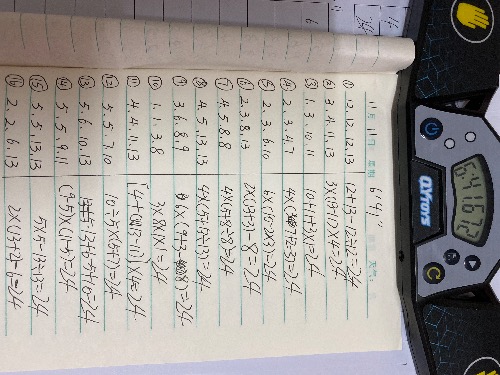 11月 11日 星期 6'41" 天气
① 12, 12, 12, 13 12+13-12÷12=24
② 3, 4, 11, 13 3×(13-11)×4=24
③ 1, 3, 10, 11 10+11+3×1=24
④ 2, 3, 4, 7 4×(7+2-3)=24
⑤ 2, 3, 6, 10 6×(10-2×3)=24
⑥ 2, 3, 8, 13 2×(3+13)-8=24
⑦ 4, 5, 8, 8 4×(5+8÷8)=24
⑧ 4, 5, 13, 13 4×(5+13÷13)=24
⑨ 3, 6, 8, 9 =24
⑩ 1, 1, 3, 8 3×8×1×1=24
⑪ 4, 4, 11, 13 =24
⑫ 5, 5, 7, 10 10÷5×(5+7)=24
⑬ 5, 6, 10, 13 13+6-5+10=24
⑭ 5, 5, 9, 11 (9-5)×(11-5)=24
⑮ 5, 5, 13, 13 5×5-13÷13=24
⑯ 2, 2, 6, 13 2×(13+2)-6=24
6:41.612